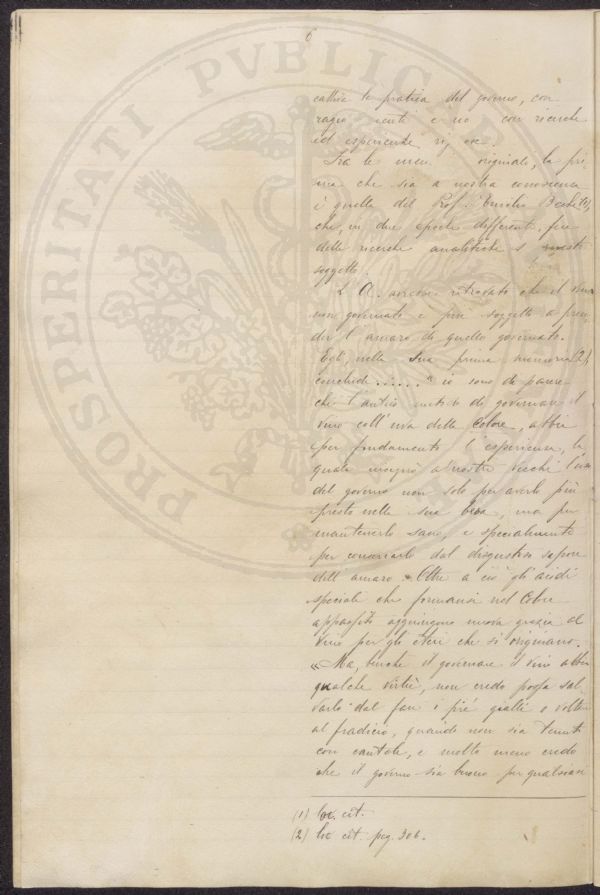 6
la pratica del governo, con
e no con ricerche
ed esperienze
Tra le originali, la pri-
ma che sia a nostra conoscenza
è quella del Prof. Emilio Bechi (1),
che, in due epoche differenti, fece
delle ricerche analitiche su questo
soggetto.
L'A. avrebbe ritrovato che il vino
non governato è più soggetto a pren-
der l'amaro di quello governato.
Egli, nella sua prima memoria (2)
conclude ...... "io sono di parere
che l'antico metodo di governare il
vino coll'uva delle Colore, abbia
per fondamento l'esperienza, la
quale insegnò a' nostri vecchi l'uso
del governo non solo per averlo più
presto nella sua beva, ma per
mantenerlo sano, e specialmente
per conservarlo dal disgustoso sapore
dell'amaro. Oltre a ciò gli acidi
speciali che formansi nel Colore
appassito aggiungono nuova grazia al
vino per gli eteri che si originano.
«Ma, benchè il governare il vino abbia
qualche virtù, non credo possa sal-
varlo dal far i piè gialli o voltare
al fradicio, quando non sia tenuto
con cautele, e molto meno credo
che il governo sia buono per qualsiasi
(1) loc. cit.
(2) loc cit. pag. 306.
PROSPERITATI PVBLICAE